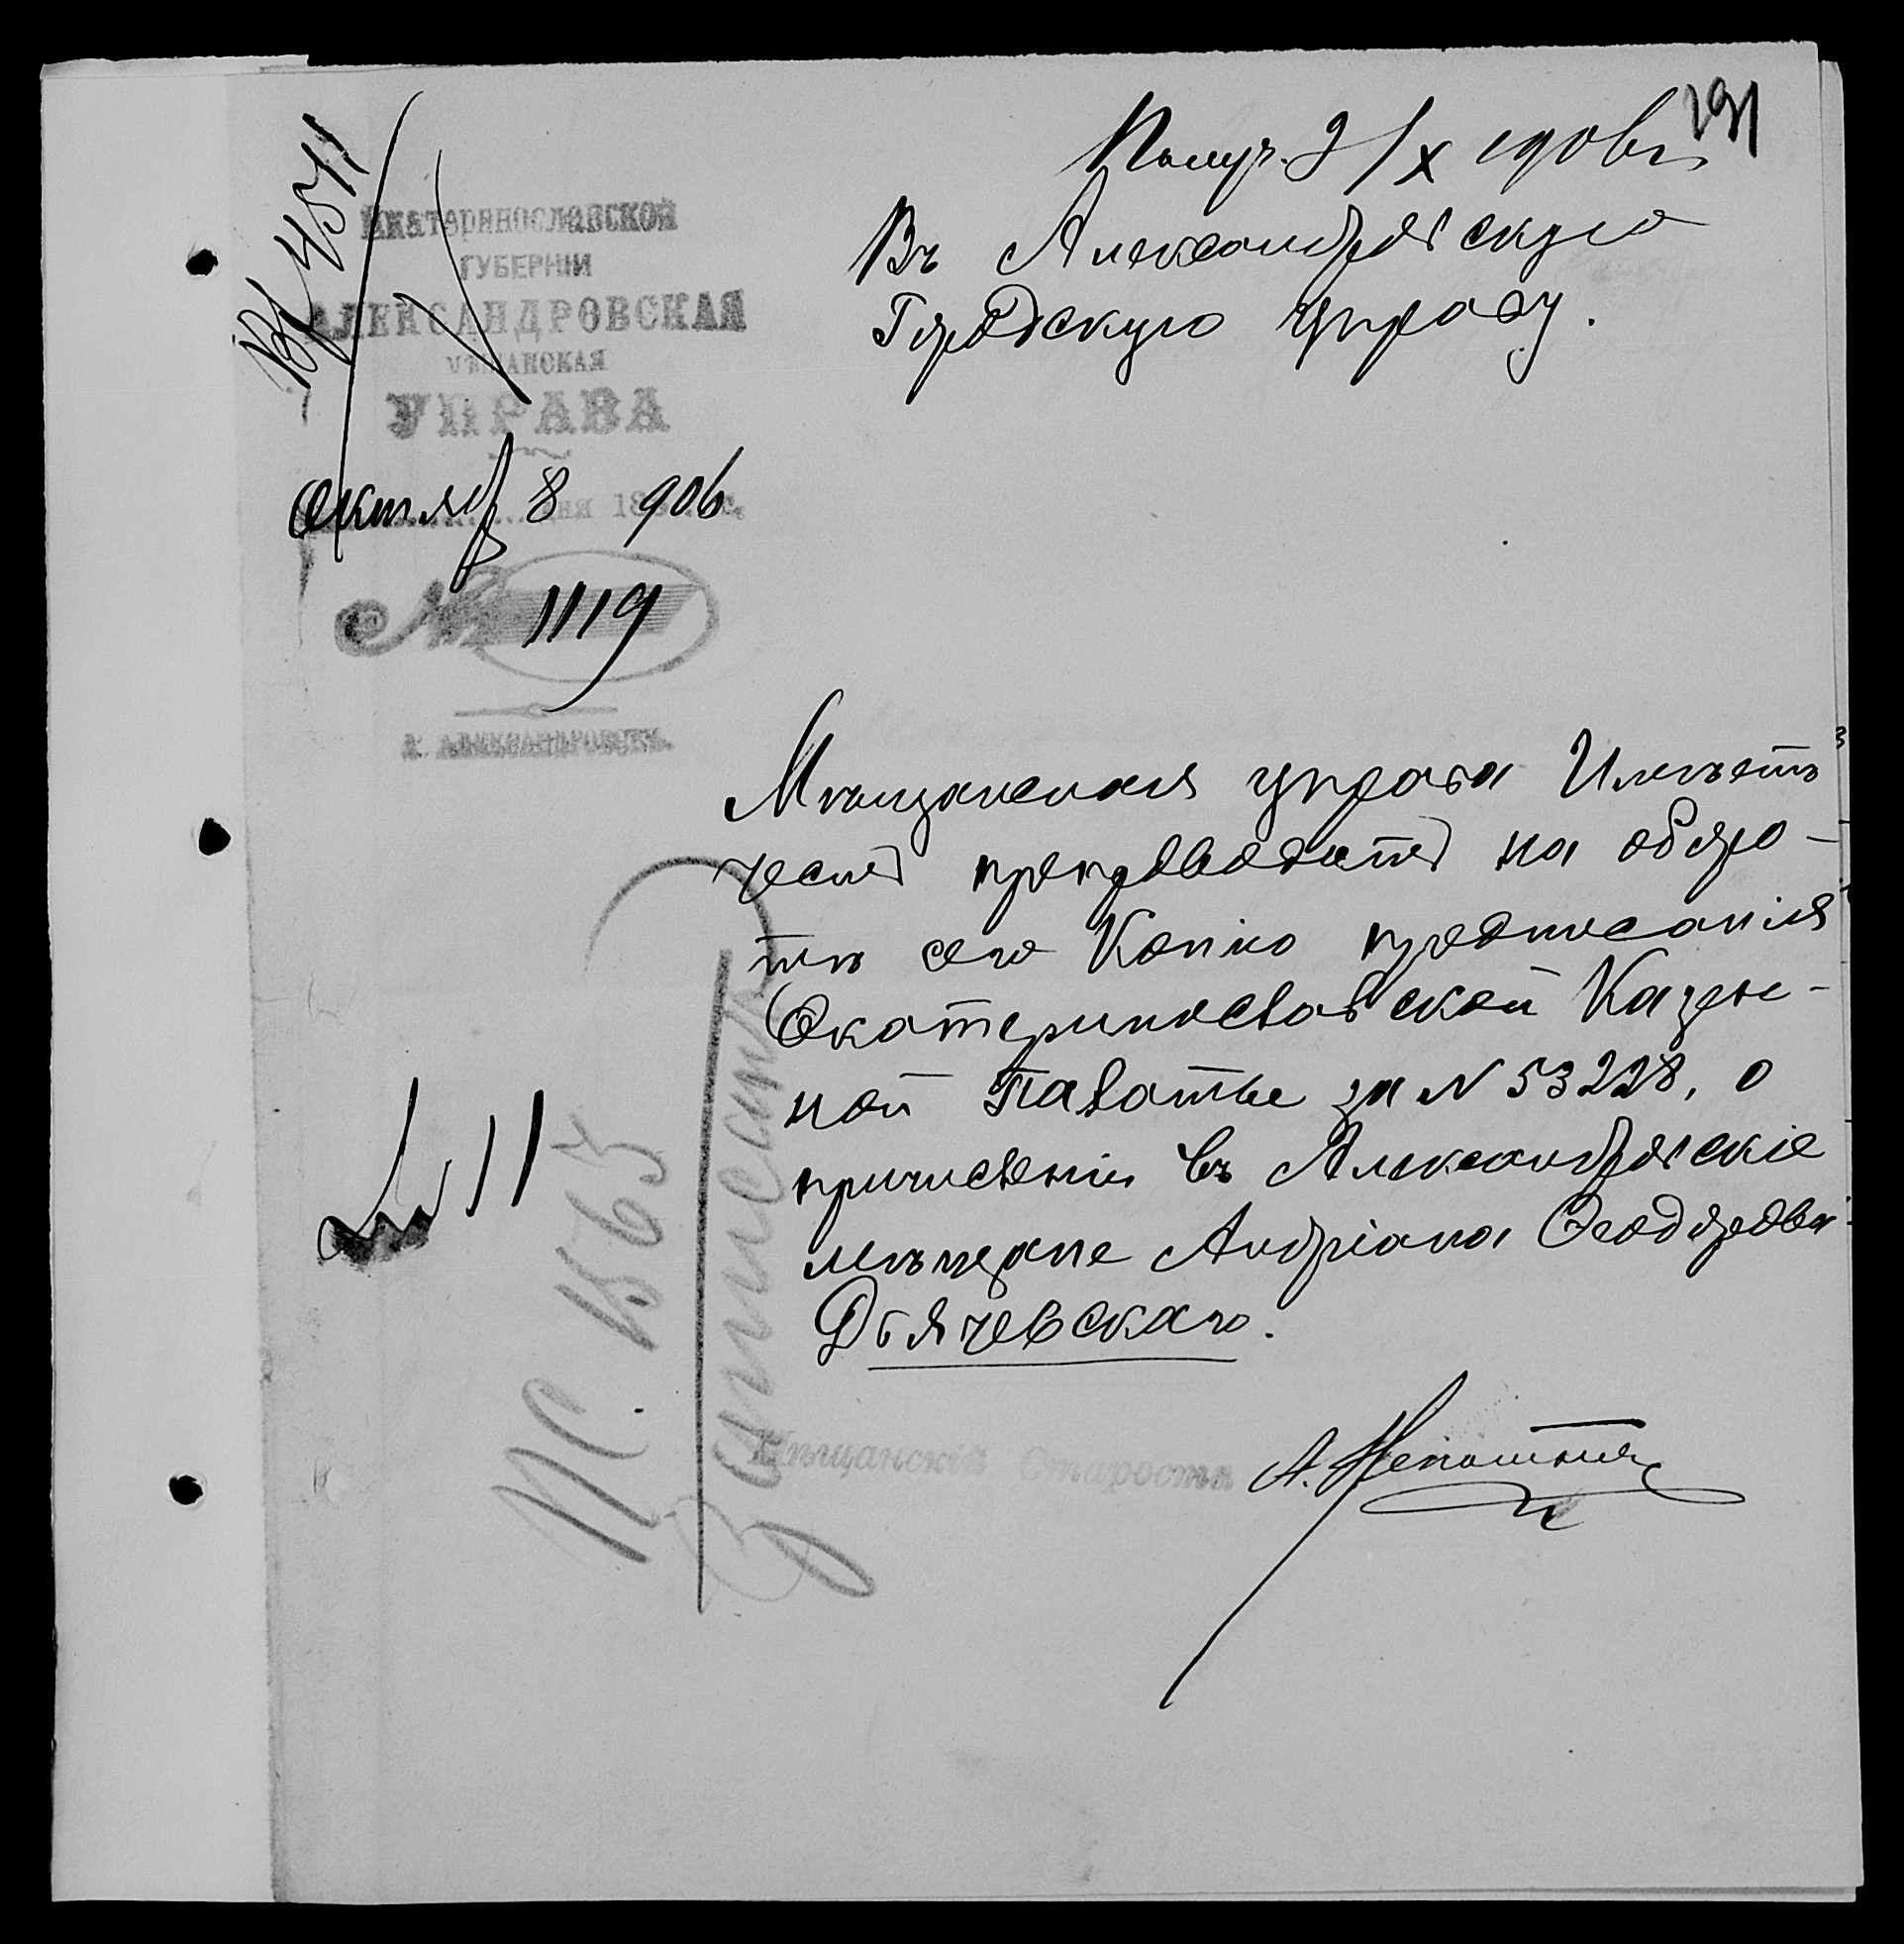 191
Получ. 9/X 1906 г.
Вх 4511
Екатеринославской
ГУБЕРНІИ
АЛЕКСАНДРОВСКАЯ
МѢЩАНСКАЯ
УПРАВА
Октяб 8 906
дня 18
№ 1119
г. АЛЕКСАНДРОВСКЪ.
Въ Александровскую
Городскую Управу.
Мѣщанская управа Имѣетъ
честь препроводить на оборо-
тѣ сего Копію предписанія
Екатеринославской Казен-
ной Палаты за N 53228, о
причисленіи въ Александровскіе
мѣщане Андріана Феодорова
Дьячевскаго.
Мѣщанскій Староста
11
1563
Записать